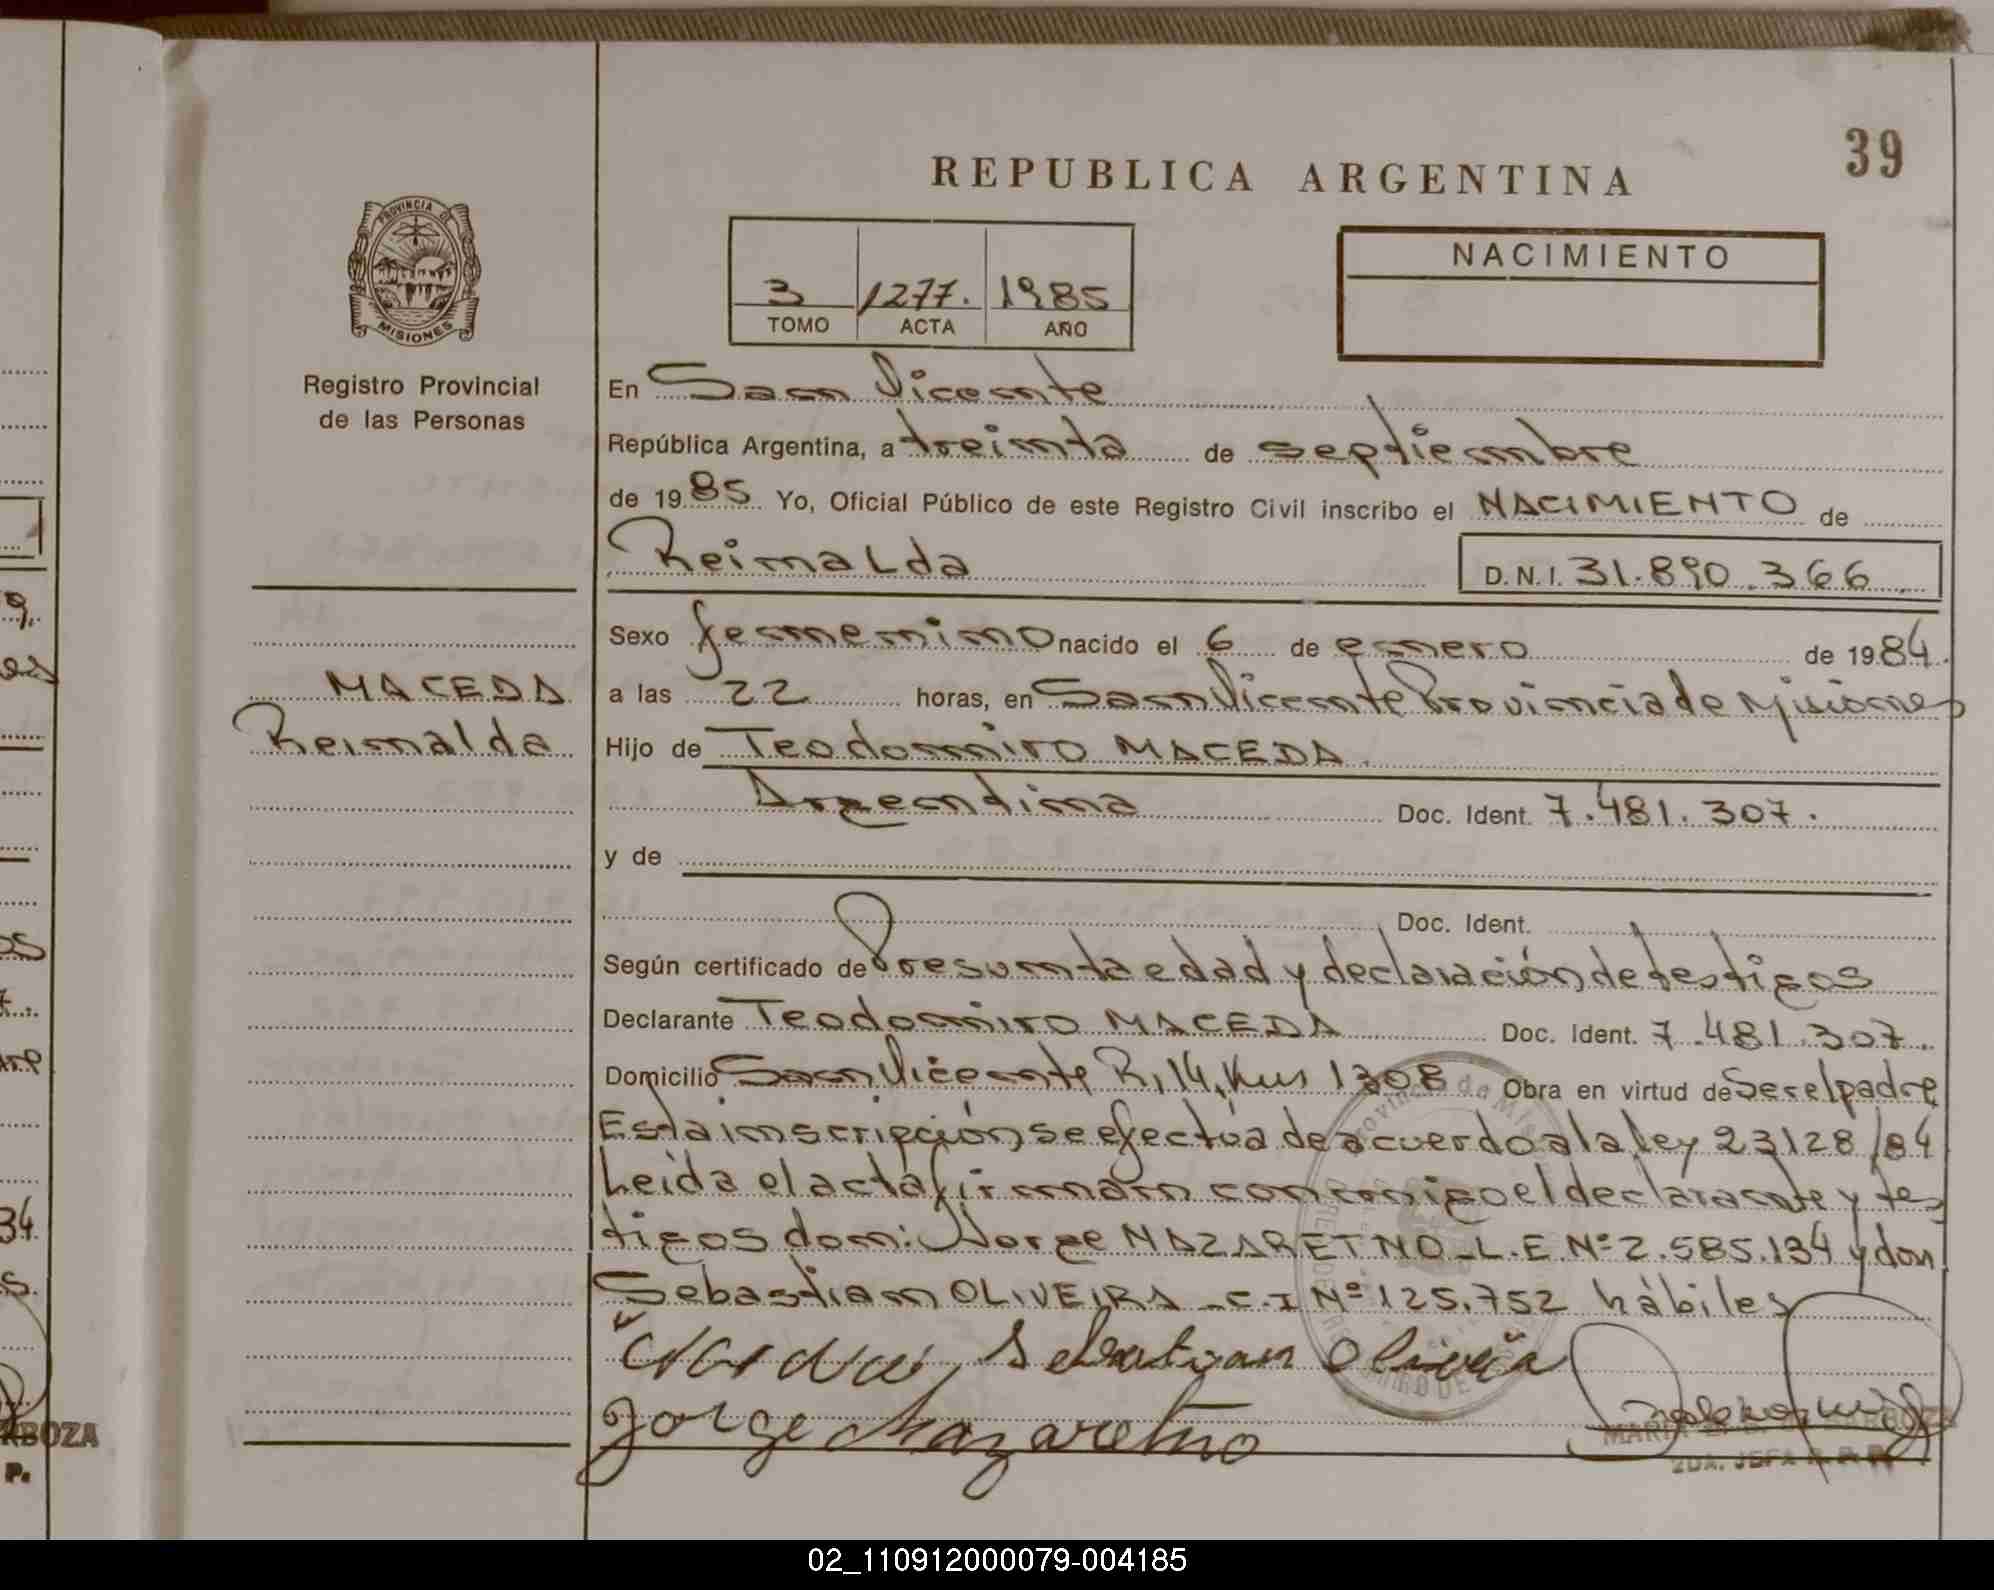 39
REPUBLICA ARGENTINA
PROVINCIA DE
MISIONES
Registro Provincial
de las Personas
3 1277. 1985
TOMO ACTA AÑO
NACIMIENTO
En San Vicente
República Argentina, a treinta de septiembre
de 1985. Yo, Oficial Público de este Registro Civil inscribo el NACIMIENTO de
Reinalda D.N.I. 31.890.366
MACEDA
Reinalda
Sexo femenino nacido el 6 de enero de 1984.
a las 22 horas, en San Vicente Provincia de Misiones
Hijo de Teodomiro MACEDA.
Argentina Doc. Ident. 7.481.307.
y de
Doc. Ident.
Según certificado de Presunta edad y declaración de testigos
Declarante Teodomiro MACEDA Doc. Ident. 7.481.307.
Domicilio San Vicente R, 14, Km 1308 Obra en virtud de Ser el padre
Esta inscripción se efectúa de acuerdo a la ley 23128/84
Leída el acta firman conmigo el declarante y tes
tigos don: Jorge NAZARETNO - L.E Nº 2.585.134 y don
Sebastian OLIVEIRA - C.I Nº 125.752 hábiles
Sebastian Oliveira
Jorge Nazaretno
2DA. JEFA R. P. P.
BOZA
P.
02_110912000079-004185